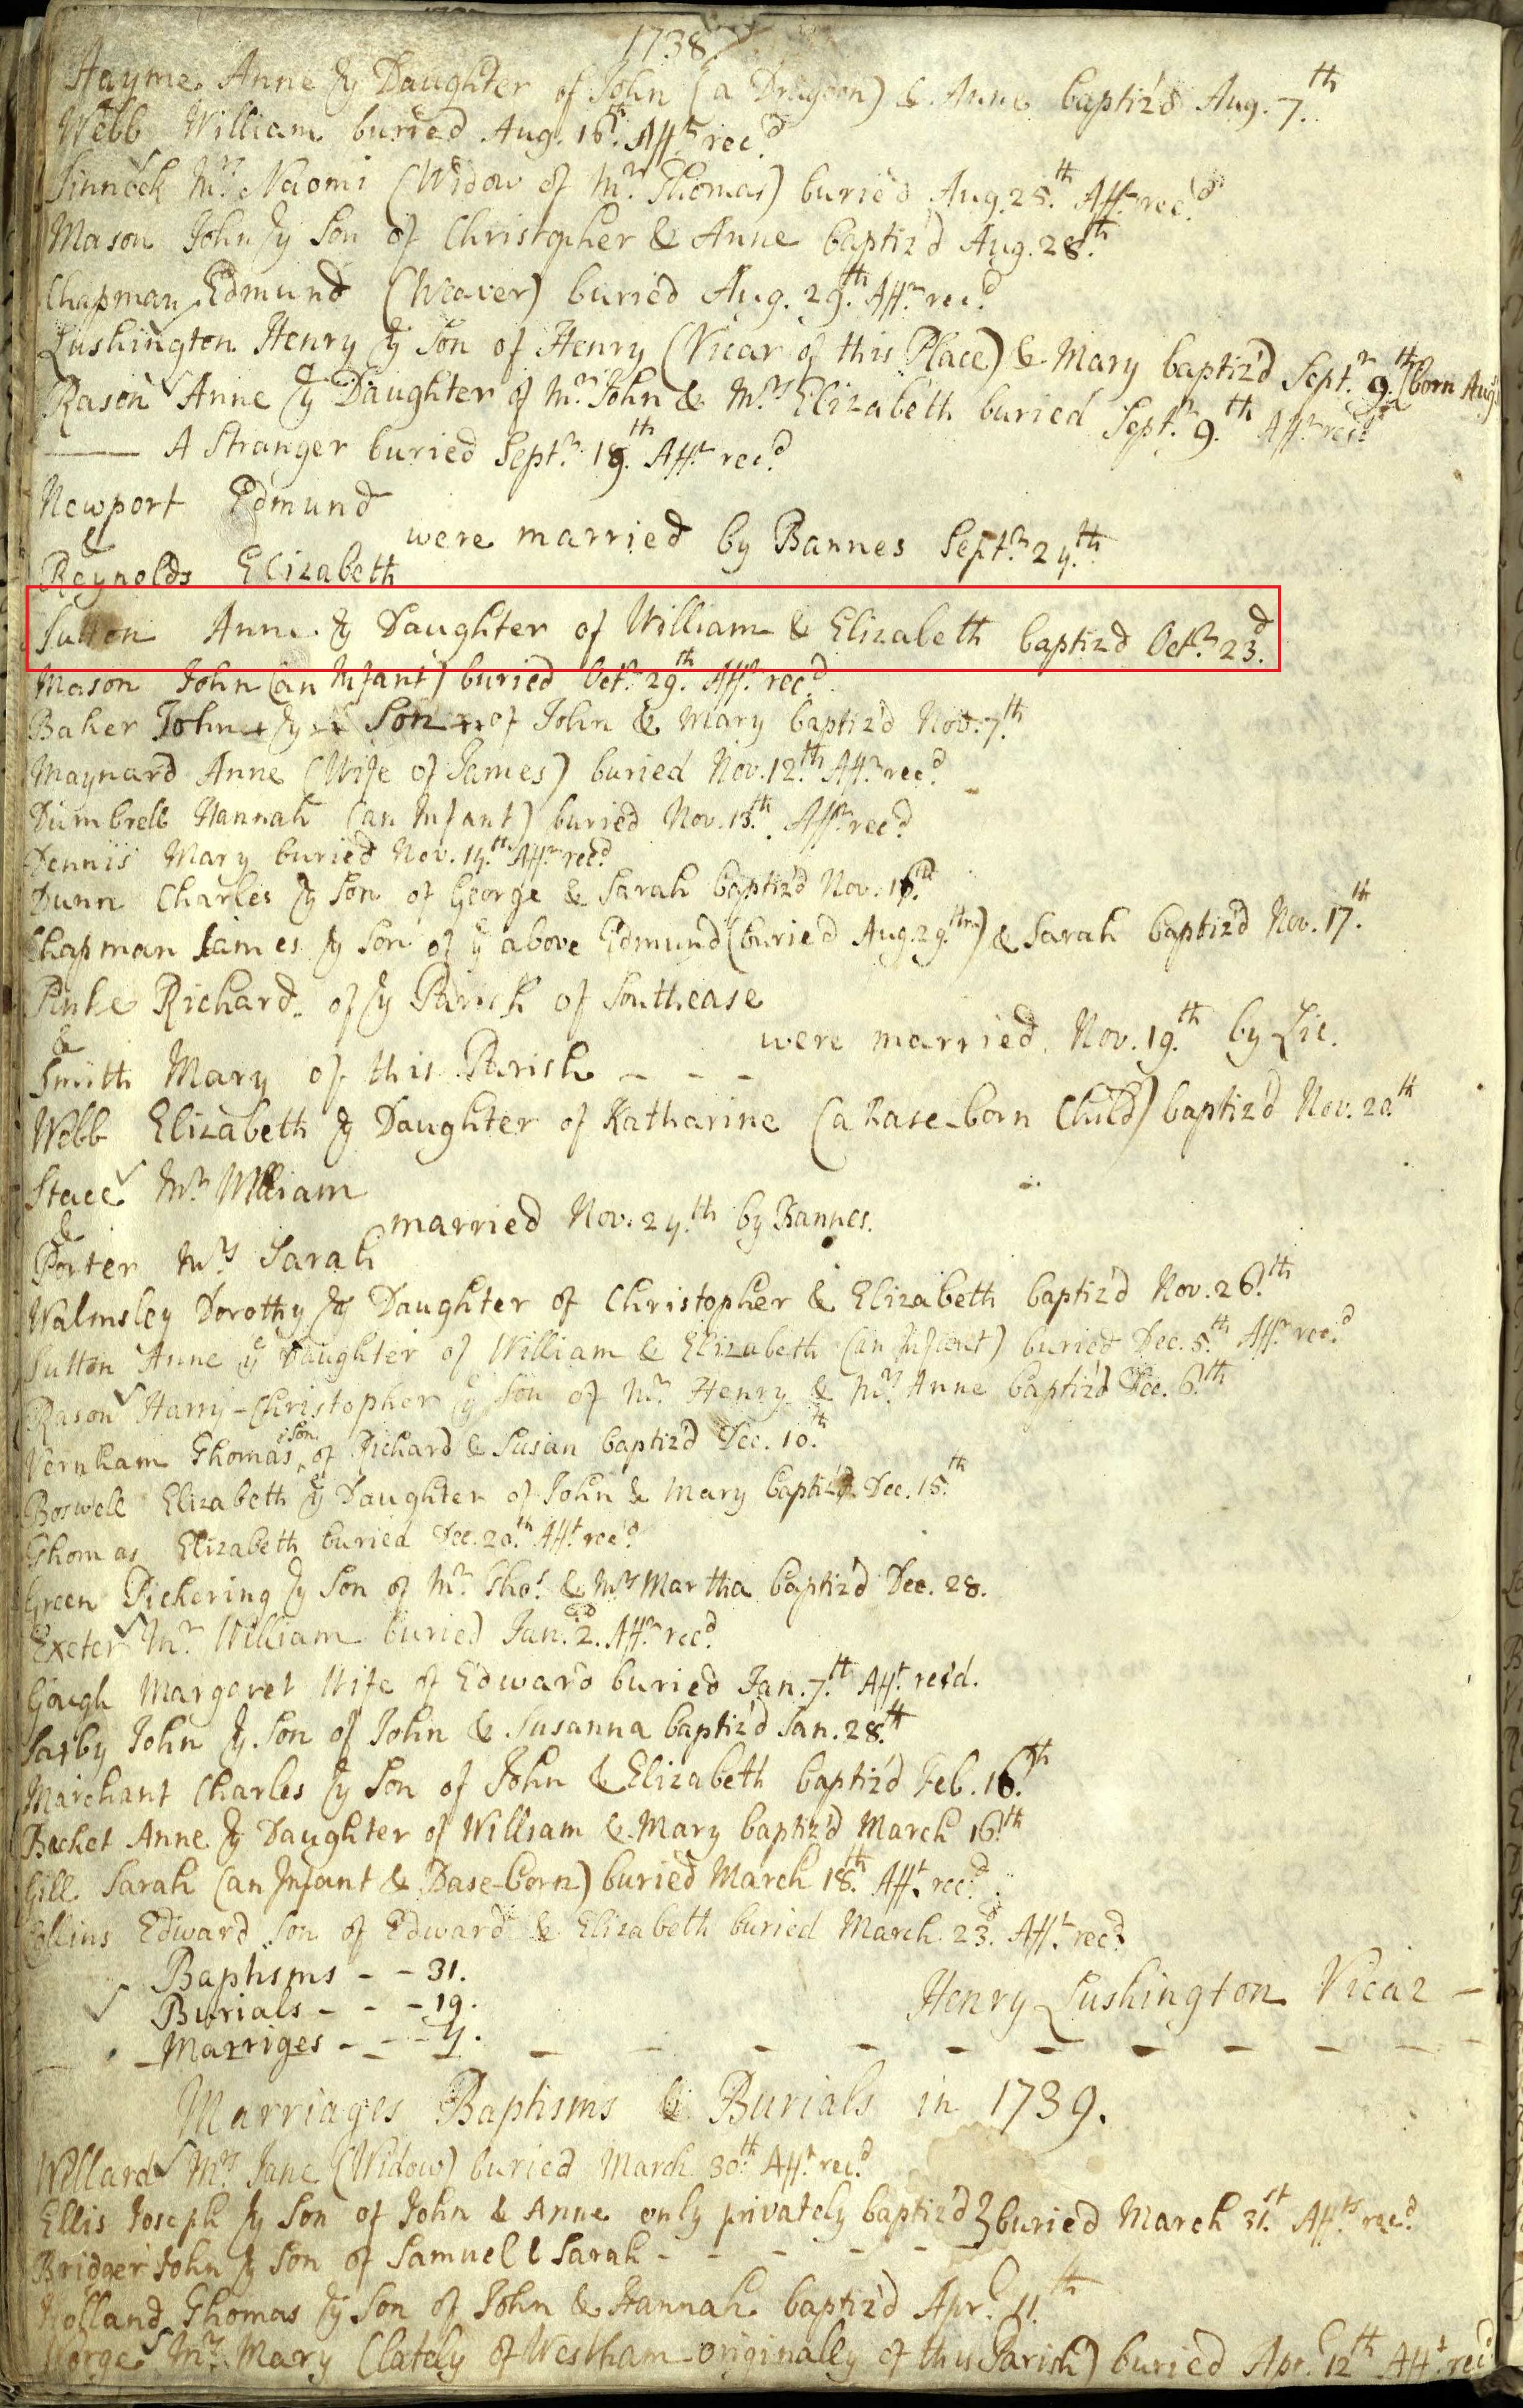 1738
Hayme Anne ye Daughter of John (a Dragoon) & Anne baptiz'd Aug. 7.th
Webb William buried Aug. 16.th Afft rec.d
Sinnock Mrs Naomi (Widow of Mr Thomas) buried Aug. 25.th Afft rec.d
Mason John ye Son of Christopher & Anne baptiz'd Aug. 28.th
Chapman Edmund (Weaver) buried Aug. 29.th Afft rec.d
Lushington Henry ye Son of Henry (Vicar of this Place) & Mary baptiz'd Septr 9.th (born Aug
Rason Anne ye Daughter of Mr John & Mrs Elizabeth buried Septr 9.th Afft rec.d
—— A Stranger buried Septr 19.th Afft rec.d
Newport Edmund
&
were married by Bannes Septr 24.th
Reynolds Elizabeth
Sutton Anne ye Daughter of William & Elizabeth baptiz'd Octr 23.d
Mason John (an Infant) buried Octr 29.th Afft rec.d
Baker John ye Son of John & Mary baptiz'd Nov. 7.th
Maynard Anne (Wife of James) buried Nov. 12.th Afft rec.d
Dumbrell Hannah (an Infant) buried Nov. 13.th Afft rec.d
Dennis Mary buried Nov. 14.th Afft rec.d
Dunn Charles ye Son of George & Sarah baptiz'd Nov. 16.th
Chapman James ye Son of ye above Edmund (buried Aug. 29.th) & Sarah baptiz'd Nov. 17.th
Pinke Richard of ye Parish of Southease
&
were married Nov. 19.th by Lic.
Smith Mary of this Parish - - -
Webb Elizabeth ye Daughter of Katharine (a Base-born Child) baptiz'd Nov. 20th
Stace Mr William
&
married Nov. 24.th by Bannes.
Porter Mrs Sarah
Walmsley Dorothy ye Daughter of Christopher & Elizabeth baptiz'd Nov. 26.th
Sutton Anne ye Daughter of William & Elizabeth (an Infant) buried Dec. 5.th Afft rec.d
Rason Harry-Christopher ye Son of Mr Henry & Mrs Anne baptiz'd Dec. 6.th
Vernham Thomas Son of Richard & Susan baptiz'd Dec. 10.th
Boswell Elizabeth ye Daughter of John & Mary baptiz'd Dec. 15.th
Thomas Elizabeth buried Dec. 20.th Afft rec.d
Green Pickering ye Son of Mr Thos & Mrs Martha baptiz'd Dec. 28.
Exeter Mr William buried Jan. 2.d Afft rec.d
Gough Margaret Wife of Edward buried Jan. 7.th Afft rec'd.
Saxby John ye Son of John & Susanna baptiz'd Jan. 28.th
Marchant Charles ye Son of John & Elizabeth baptiz'd Feb. 16.th
Becket Anne ye Daughter of William & Mary baptiz'd March 16.th
Gill Sarah (an Infant & Base-born) buried March 18.th Afft rec.d
Collins Edward Son of Edward & Elizabeth buried March 23.d Afft rec.d
Baptisms - - 31.
Burials - - - 19.
Henry Lushington Vicar -
Marriges - - - 4.
Marriages Baptisms & Burials in 1739.
Willard Mrs Jane (Widow) buried March 30.th Afft rec.d
Ellis Joseph ye Son of John & Anne only privately baptiz'd } buried March 31.st Affts rec.d
Bridger John ye Son of Samuel & Sarah - - - - - -
Holland Thomas ye Son of John & Hannah baptiz'd Apr. 11.th
Worge Mrs Mary (lately of Westham originally of this Parish) buried Apr. 12th Afft rec.d